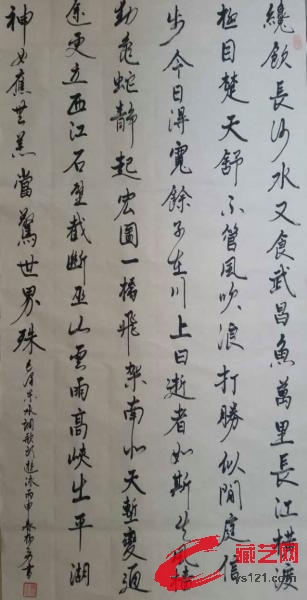 纔飲長沙水又食武昌魚萬里長江橫渡
極目楚天舒不管風吹浪打勝似閒庭信
步今日得寬餘子在川上曰逝者如斯夫風檣
動龜蛇靜起宏圖一橋飛架南北天塹變通
途更立西江石壁截斷巫山雲雨高峽出平湖
神女應無恙當驚世界殊 毛澤東水調歌頭游泳丙申春書
藏艺网
ys121.com